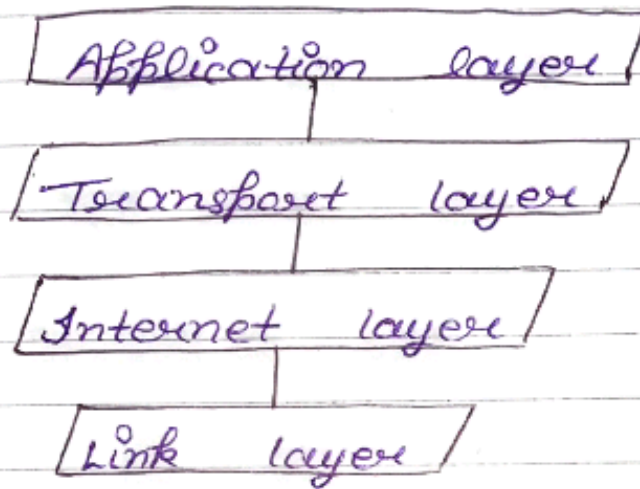 Application layer
Transport layer
Internet layer
Link layer